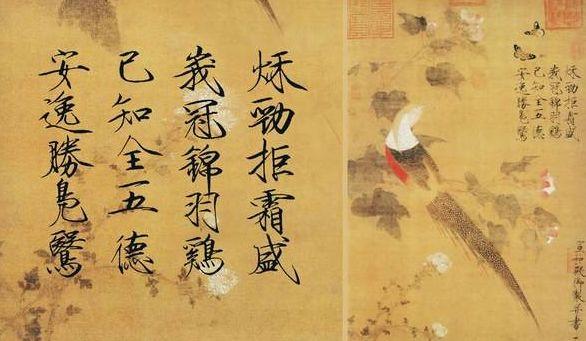 秋勁拒霜盛
峩冠錦羽鷄
已知全五德
安逸勝鳧鷖
秋勁拒霜盛
峩冠錦羽鷄
已知全五德
安逸勝鳧鷖
宣和殿御製并書